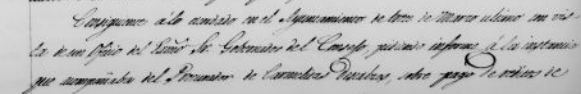 Consiguiente á lo acordado en el Ayuntamiento de trece de Marzo ultimo en vis-
ta de un Oficio del Exmo Sr. Gobernador del Consejo, pidiendo informe á la instancia
que acompañaba del Procurador de Carmelitas Descalzos, sobre pago de réditos de